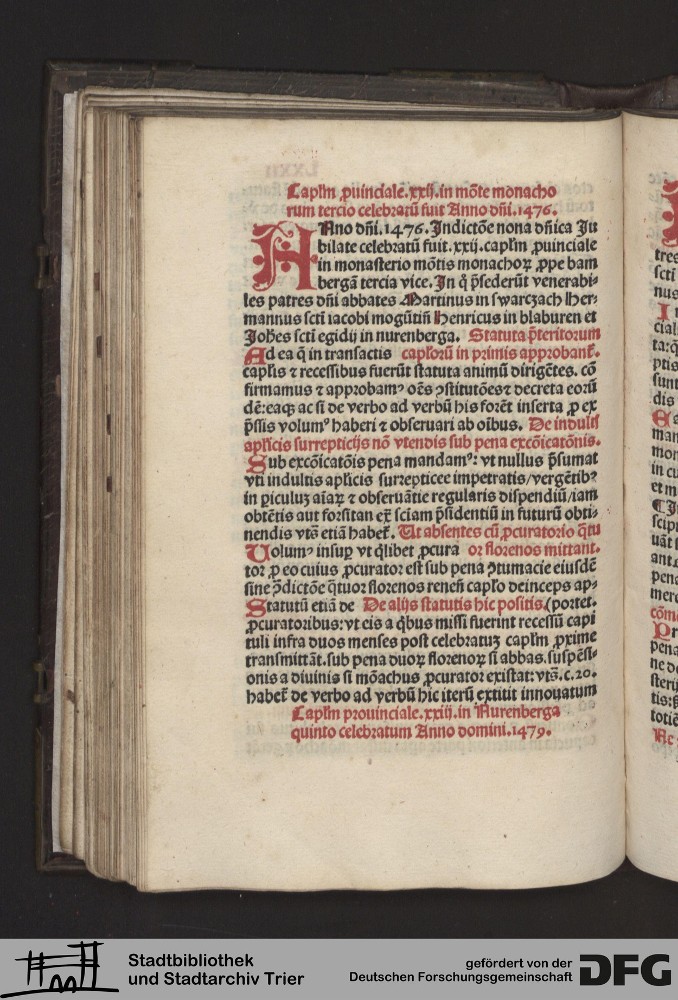 Caplm̄ ꝓuinciale.xxij.in mōte monacho
rum tercio celebratū fuit Anno dn̄i.1476.
ANno dn̄i.1476.Indictōe nona dn̄ica Ju
bilate celebratū fuit.xxij.caplm̄ ꝓuinciale
in monasterio mōtis monachoꝝ ꝓpe bam
bergā tercia vice.In q̊ p̄sederūt venerabi-
les patres dn̄i abbates Martinus in swarczach Her-
mannus scti iacobi mogūtin̄ Henricus in blaburen et
Joh̄es scti egidij in nurenberga. Statuta p̄teritorum
Ad ea q̄ in transactis caplorū in primis approbant̄.
caplis ⁊ recessibus fuerūt statuta animū dirigētes. cō
firmamus ⁊ approbamꝰ oēs ꝯstitutōes ⁊ decreta eorū
dē:eaqꝫ ac si de verbo ad verbū his forēt inserta ꝓ ex
p̄ssis volumꝰ haberi ⁊ obseruari ab oībus. De indultis
aplicis surrepticijs nō vtendis sub pena excōicatōnis.
Sub excōicatōis pena mandamꝰ: vt nullus p̄sumat
vti indultis aplicis surrepticee impetratis/vergētibꝫ
in ꝑiculuꝫ aīaꝝ ⁊ obseruātie regularis dispendiū/iam
obtētis aut forsitan ex̄ sciam p̄sidentiū in futurū obti-
nendis vts̄ etiā habet̄. Ut absentes cū ꝓcuratorio q̄tu
Uolumꝰ insuꝑ vt q̄libet ꝓcura or florenos mittant.
tor ꝓ eo cuius ꝓcurator est sub pena ꝯtumacie eiusdē
sine p̄dictōe q̄tuor florenos renen̄ caplo deinceps ap-
Statutū etiā de De alijs statutis hic positis.(portet.
ꝓcuratoribus:vt eis a q̄bus missi fuerint recessū capi
tuli infra duos menses post celebratuꝫ caplm̄ ꝓxime
transmittāt.sub pena duoꝝ florenoꝝ si abbas.suspēsi-
onis a diuinis si mōachus ꝓcurator existat: vts̄.c.20.
habet̄ de verbo ad verbū hic iterū extitit innouatum
Caplm̄ prouinciale.xxiij.in Nurenberga
quinto celebratum Anno domini.1479.
Stadtbibliothek
und Stadtarchiv Trier
gefördert von der
Deutschen Forschungsgemeinschaft
DFG